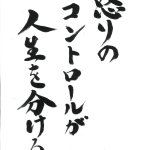 怒りの
コントロールが
人生を分ける